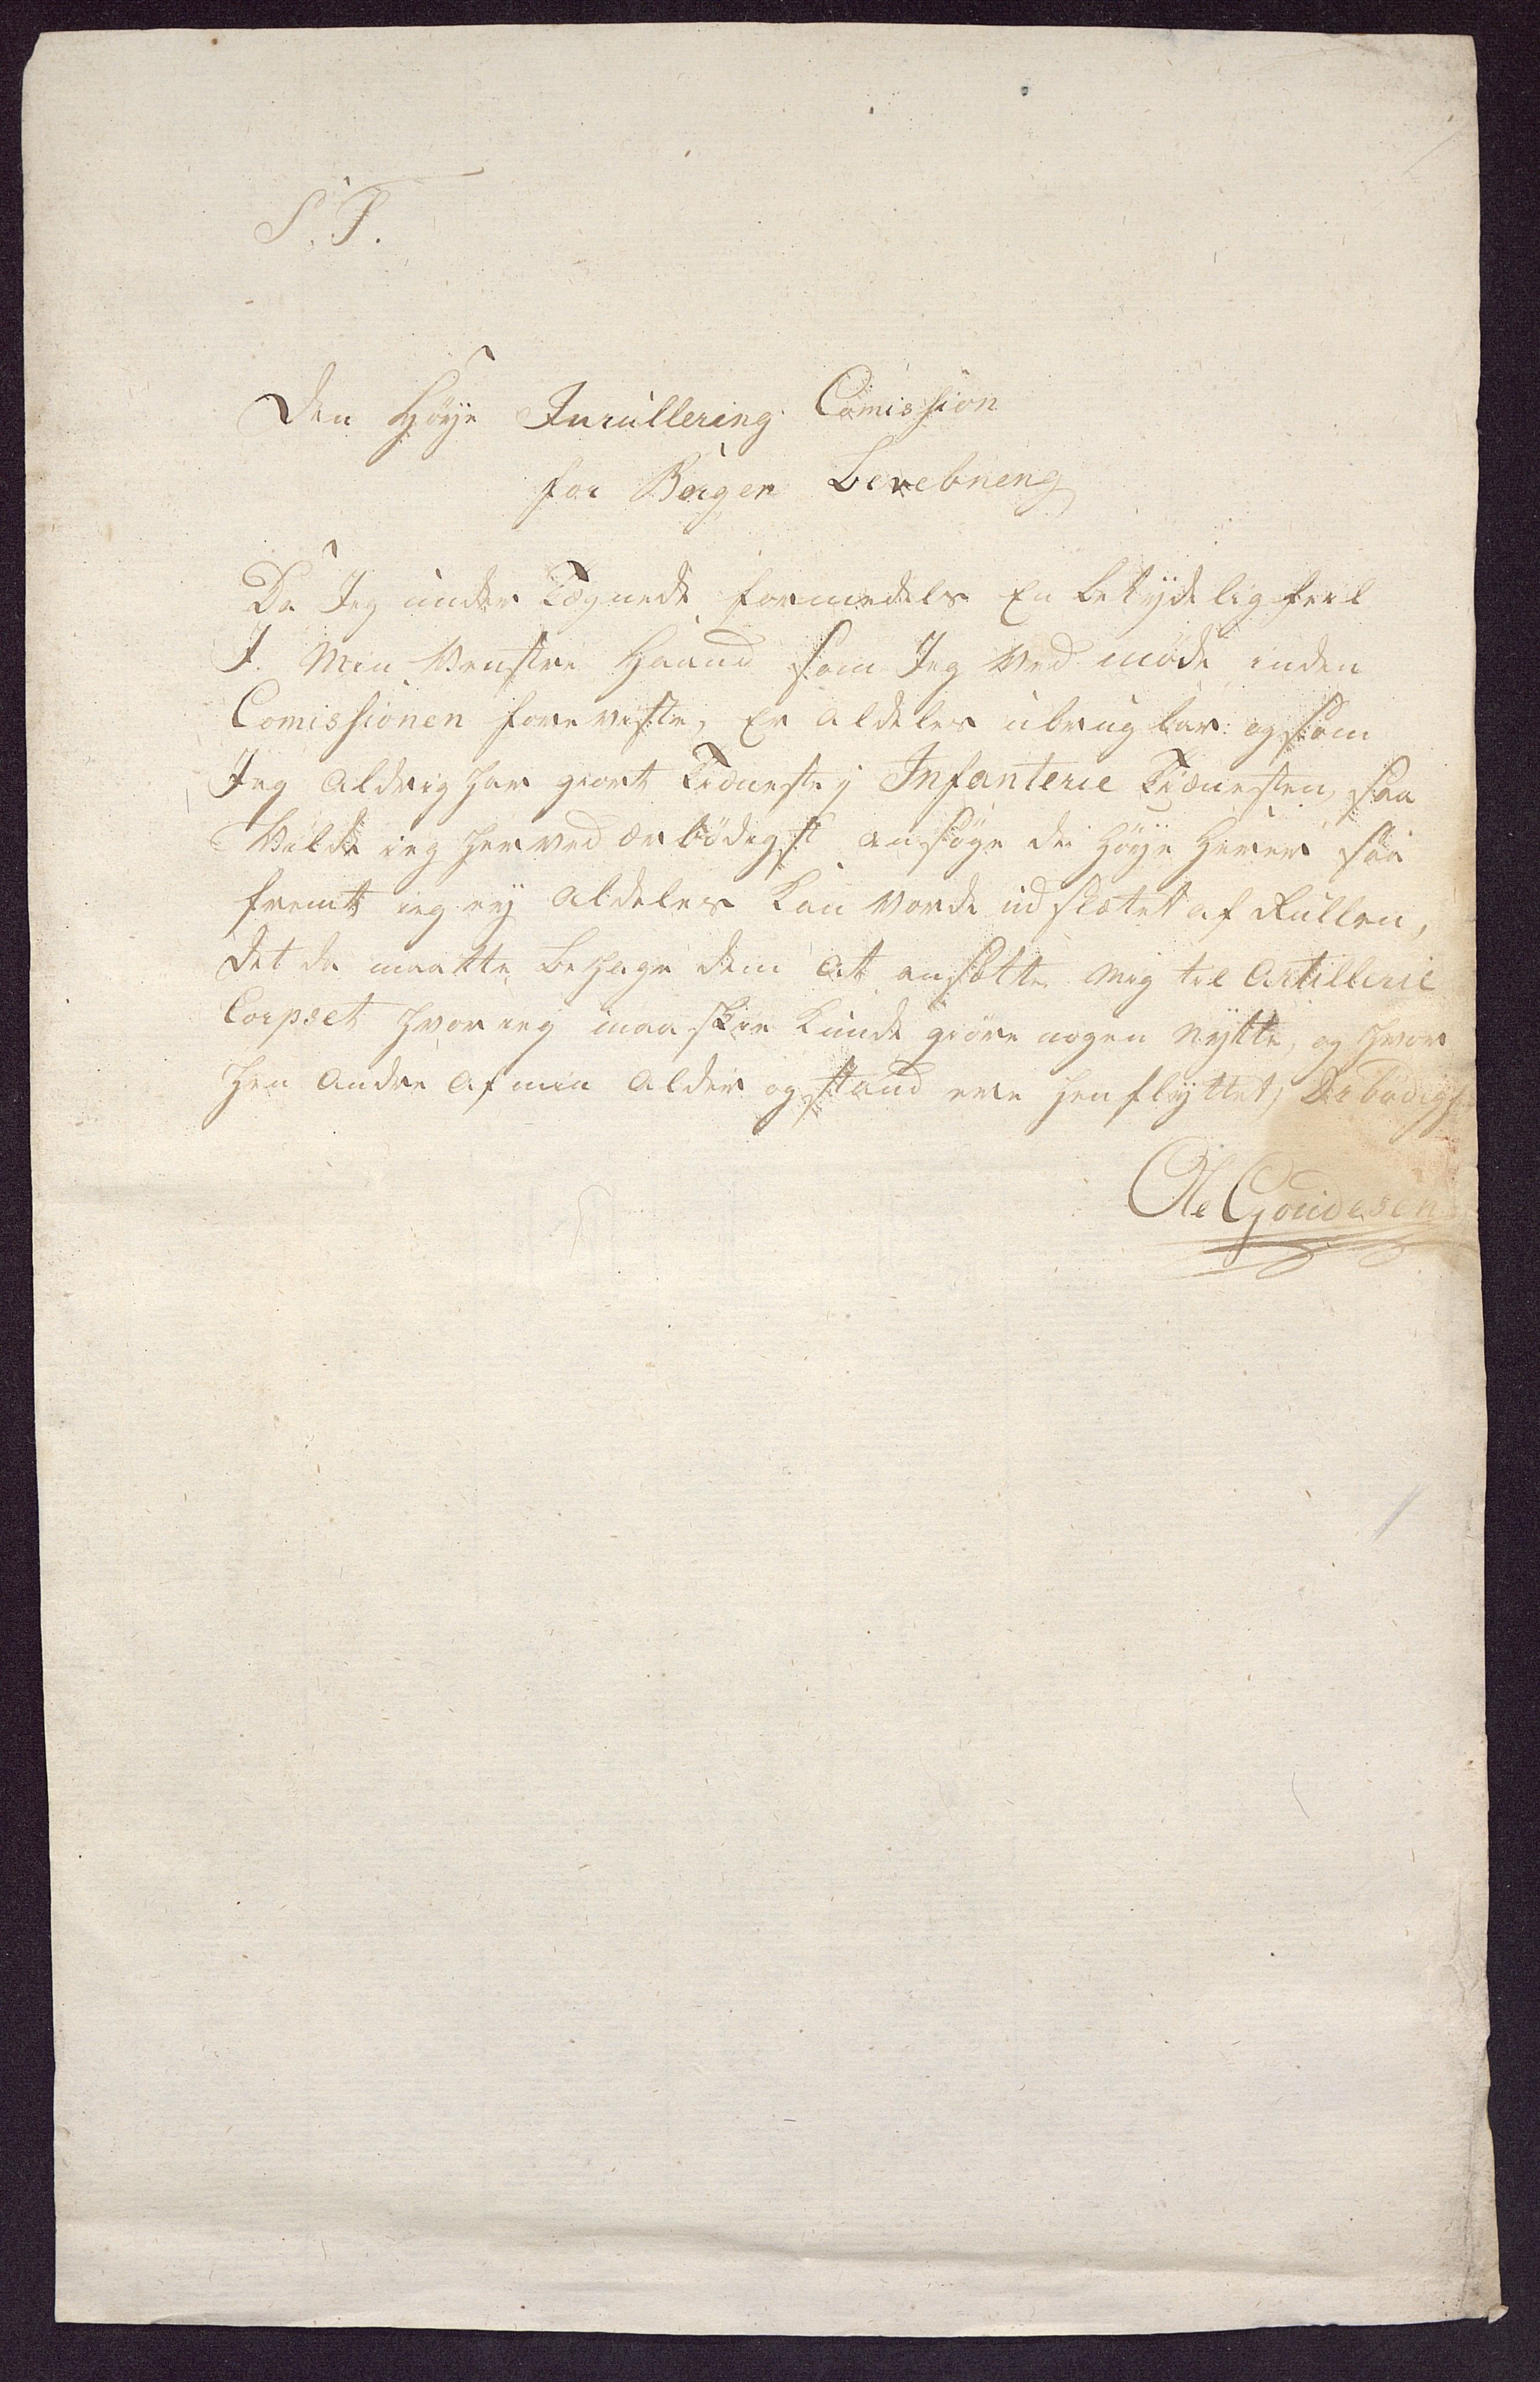 S. T.
Den Høÿe Inrullering Comission
for Borger bevebneng
Da Jeg under Tegnede formedels En betÿdelig feil
I. Min Venstre Haand som Jeg ved møde inden
Comissionen foreviste, Er aldeles ubrugbar og som
Jeg Aldrig har giort Tieneste j Infanterie Tienesten, saa
Vilde ieg herved ærbødigst ansøge de høÿe Herrer saa
fremt ieg eÿ aldeles kan vorde udslætet af Rullen,
det da maatte behage dem at ansætte mig til Artillerie
Corpset hvor ieg maa skee kunde giøre nogen Nÿtte, og hvor
hen andre af min Alder og stand ere hen flÿttet, Ærbødigst
Ole Goudesen